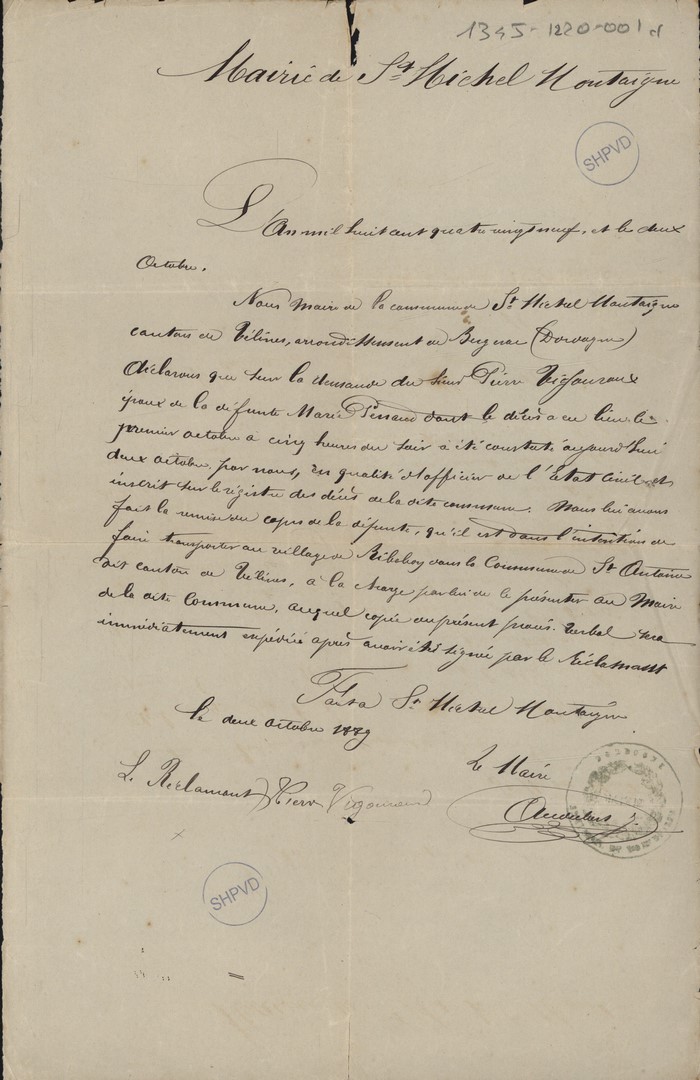 1345-1220-001d
Mairie de St Michel Montaigne
SHPVD
L'An mil huit cent quatre vingt neuf, et le deux
Octobre.
Nous Maire de la commune de St Michel Montaigne
canton de Vélines, arrondissement de Bergerac (Dordogne)
Déclarons que sur la demande du sieur Pierre Vigouroux
époux de la défunte Marie dont le décès a eu lieu le
premier octobre à cinq heures du soir a été constaté aujourd'hui
deux octobre, par nous, en qualité d'officier de l'État Civil et
inscrit sur le régistre des décès de la dite commune. Nous lui avons
fait la remise du corps de la défunte, qu'il est dans l'intention de
faire transporter au village de dans la Commune de St Antoine
dit canton de Vélines, à la charge par lui de le présenter au Maire
de la dite Commune, auquel copie du présent procès-verbal sera
immédiatement expédiée après avoir été signée par le Réclamant
Fait à St Michel Montaigne
le deux octobre 1889
Le Maire
Le Réclamant Pierre Vigouroux
SHPVD